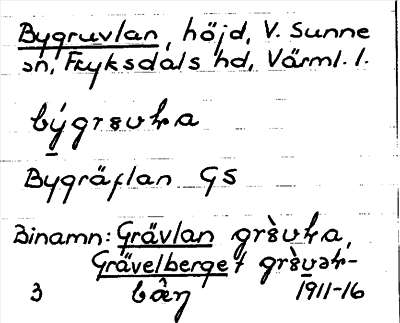 Bygruvlan, höjd, V. Sunne
sn, Fryksdals hd, Värml. l.
Bygräflan GS
Binamn: Grävlan
Grävelberget
3 1911-16